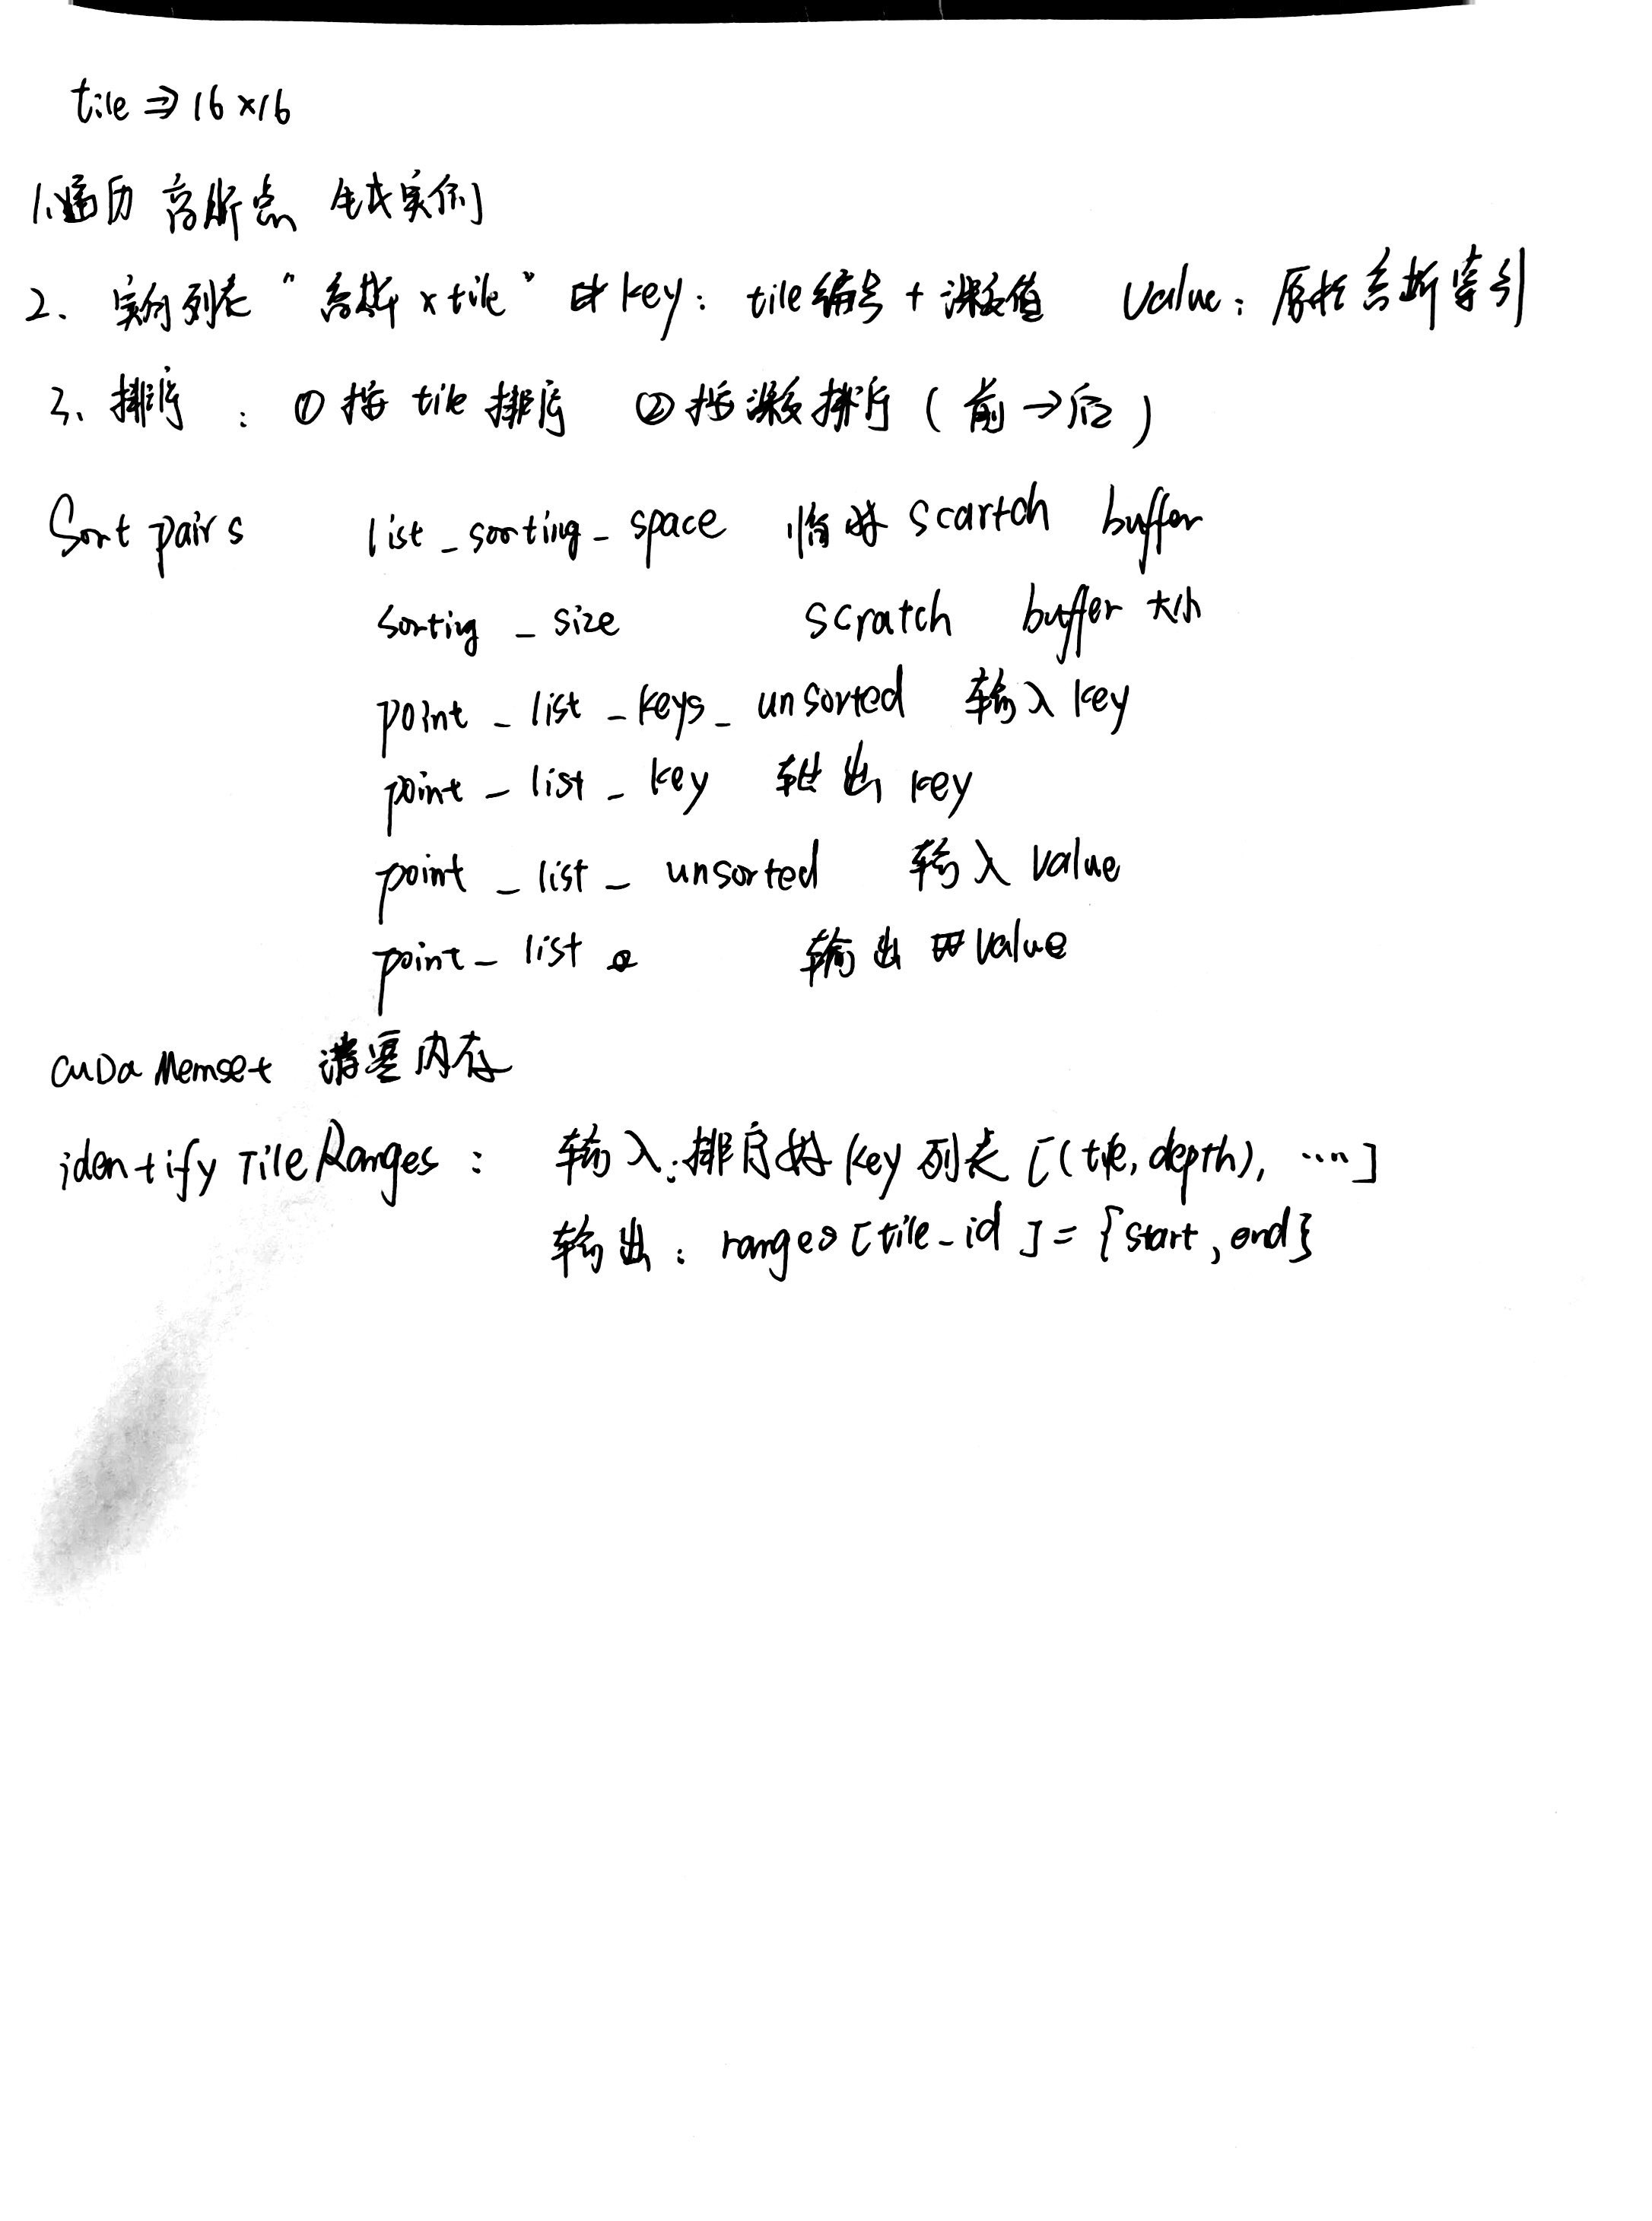 tile ⇒ 16×16
1.遍历 高斯点 生成实例
2. 实例列表 "高斯×tile" key: tile编号 + 深度值 Value: 原始高斯索引
3. 排序 : ① 按 tile 排序 ② 按深度排序 ( 前 → 后 )
Sort pairs list_sorting_space 临时 scartch buffer
sorting_size scratch buffer 大小
point_list_keys_unsorted 输入 key
point_list_key 输出 key
point_list_unsorted 输入 value
point_list 输出 value
CuDa Memset 清零内存
identify Tile Ranges : 输入:排序好 key 列表 [(tile, depth), ……]
输出: ranges [tile_id] = {start, end}